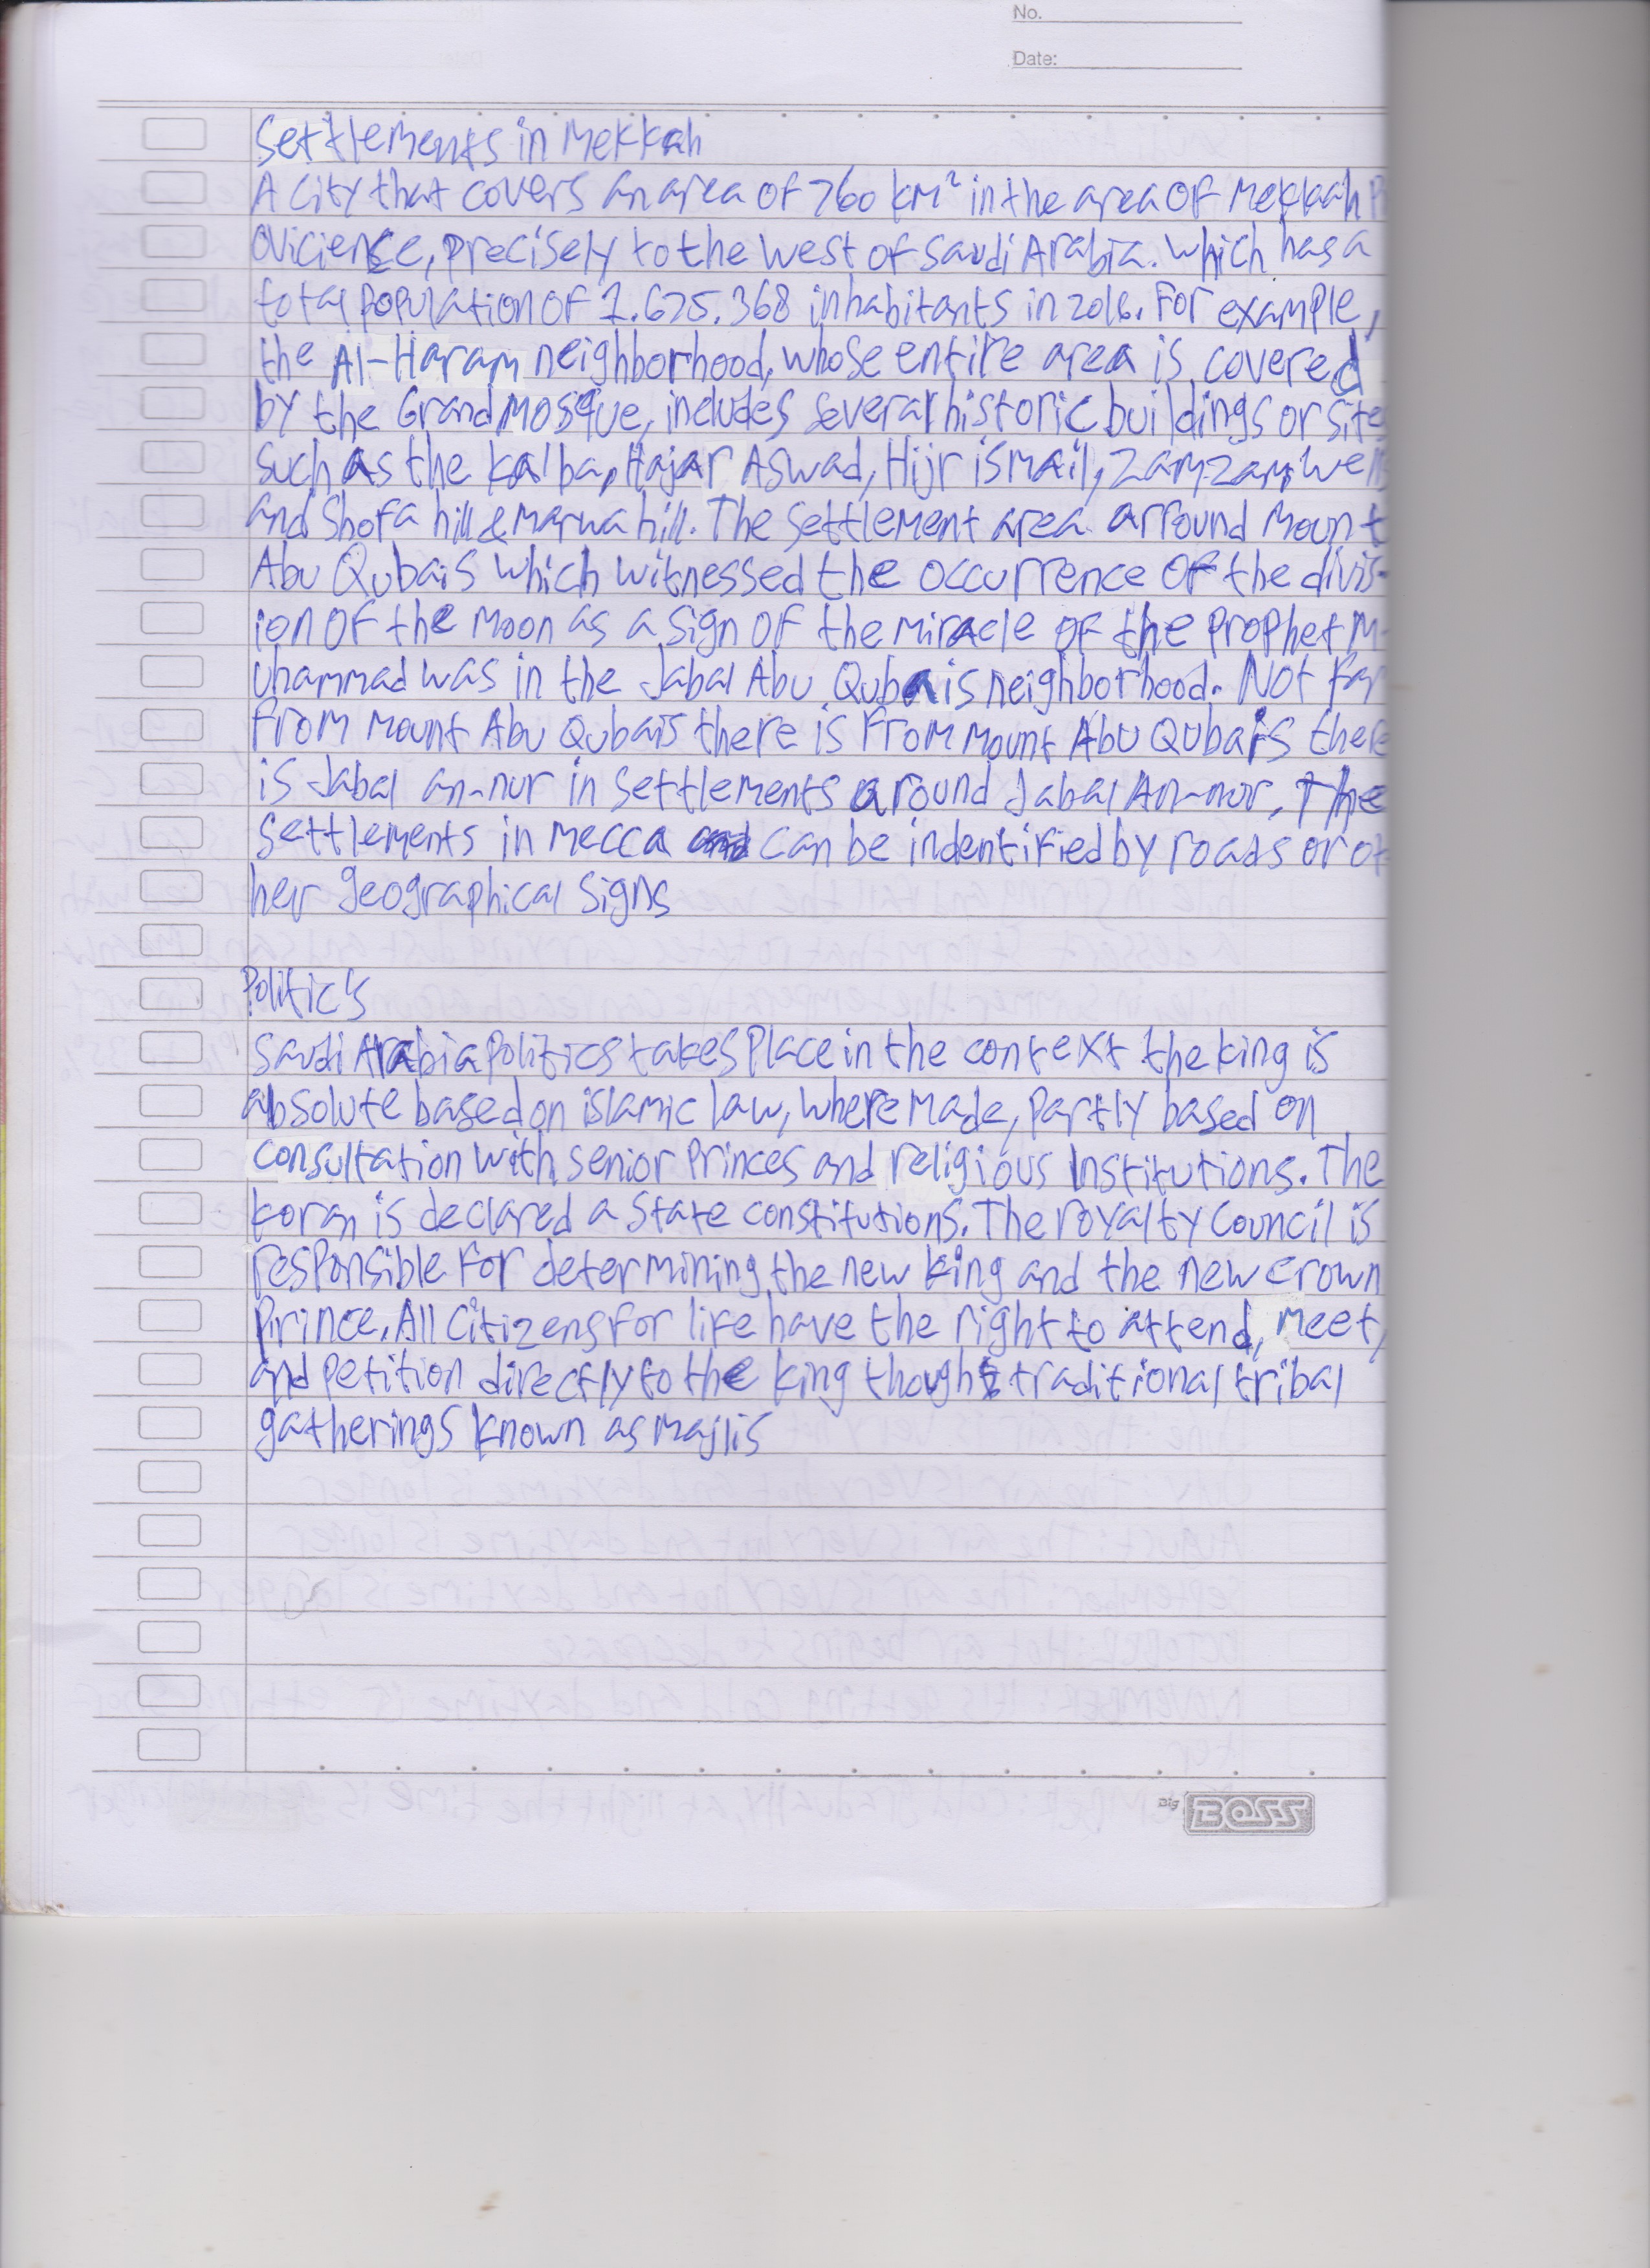 No.
Date:
Settlements in Mekkah
A City that covers an area of 760 km² in the area of Mekkah P
ovicience, precisely to the west of saudi Arabia. Which has a
total population of 1.675.368 inhabitants in 2016. For example,
the Al-Haram neighborhood, whose entire area is covered
by the Grand Mosque, includes several historic buildings or sites
such as the Kalba, Hajar Aswad, Hijr ismail, Zam-zam wells
and Shofa hill & Marwa hill. The settlement area arround Mount
Abu Qubais which witnessed the occurrence of the divis-
ion of the Moon as a sign of the miracle of the prophet M-
uhammad was in the Jabal Abu Qubais neighborhood. Not far
from Mount Abu Qubais there is From Mount Abu Qubais there
is Jabal an-nur in settlements around Jabal An-nur, The
settlements in Mecca can be indentified by roads or ot
her geographical signs
Politic's
Saudi Arabia Politics takes Place in the context the king is
absolute based on islamic law, where made, partly based on
consultation with senior Princes and religious Institutions. The
koran is declared a state constitutions. The royalty Council is
responsible for determining the new king and the new crown
Prince. All Citizens for life have the right to attend, meet,
and petition directly to the king though traditional tribal
gatherings known as majlis
Big BOSS